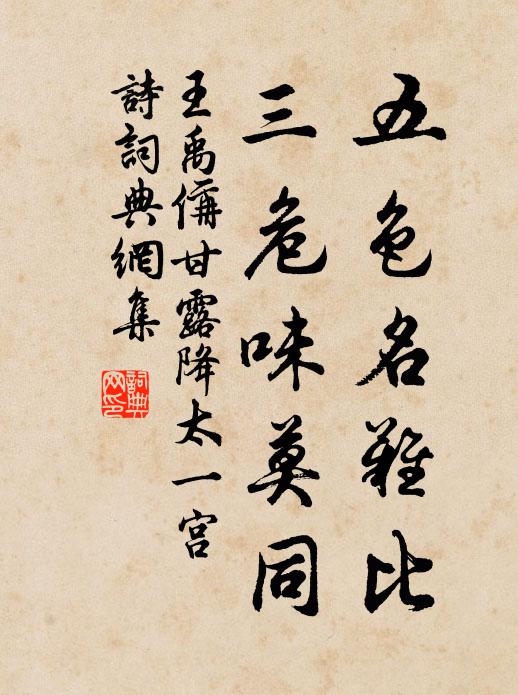 五色名難比
三危味莫同
王禹偁甘露降太一宮
詩詞典網集
詞典网印